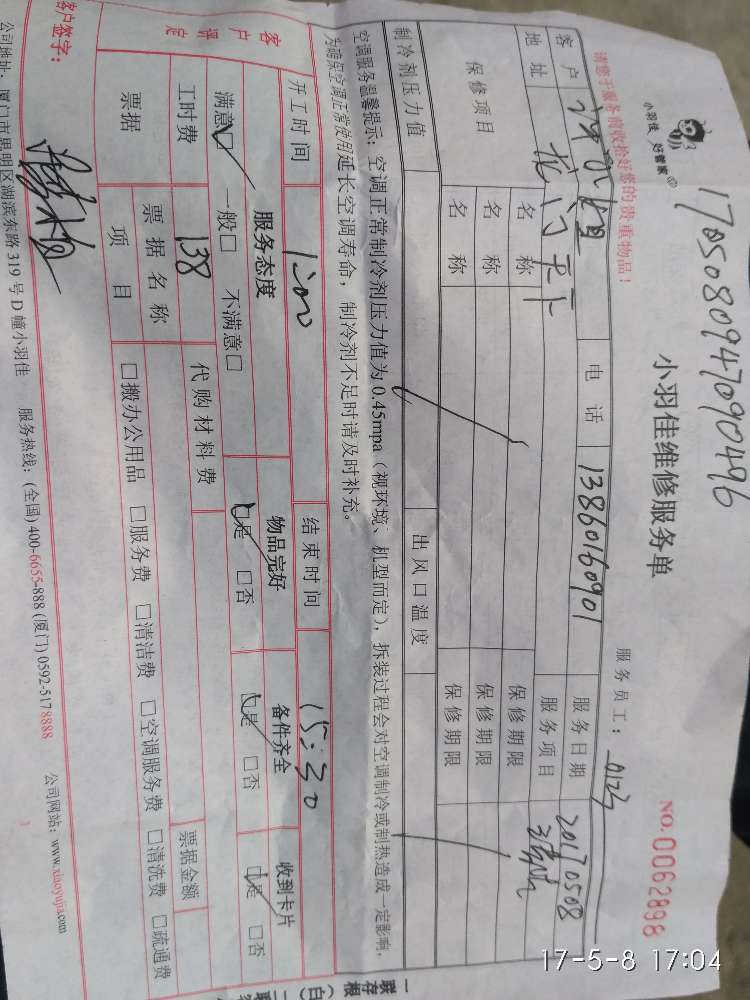 1705080947090496
小羽佳 好管家
小羽佳维修服务单
服务员工：
NO.0062898
请您于服务前收拾好您的贵重物品！
客户 电话 13860160901 服务日期 20170508
地址 龙门天下 服务项目
保修项目 名称 保修期限
名称 保修期限
名称 保修期限
制冷剂压力值 出风口温度
空调服务温馨提示：空调正常制冷剂压力值为0.45mpa（视环境、机型而定），拆装过程会对空调制冷或制热造成一定影响，
为确保空调正常使用延长空调寿命，制冷剂不足时请及时补充。
开工时间 结束时间 15:30
客户评定 服务态度 物品完好 备件齐全 收到卡片
满意□ 一般□ 不满意□ □是 □否 □是 □否 □是 □否
工时费 138 代购材料费
票据 票据名称 票据金额
项目 □搬办公用品 □服务费 □清洁费 □空调服务费 □清洗费 □疏通费
客户签字：
公司地址：厦门市思明区湖滨东路319号D幢小羽佳 服务热线：(全国)400-6655-888 (厦门)0592-5178888 公司网站：www.xiaoyujia.com
17-5-8 17:04